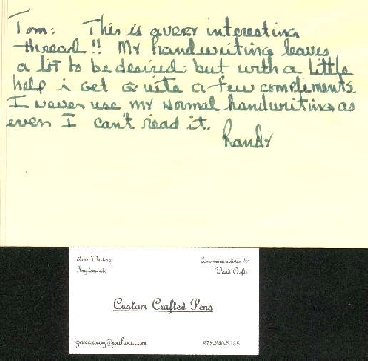 Tom: This is a very interesting
thread!! My handwriting leaves
a lot to be desired but with a little
help i get quite a few complements
I never use my normal handwriting as
even I can't read it.
Randy
Custom Crafted Pens